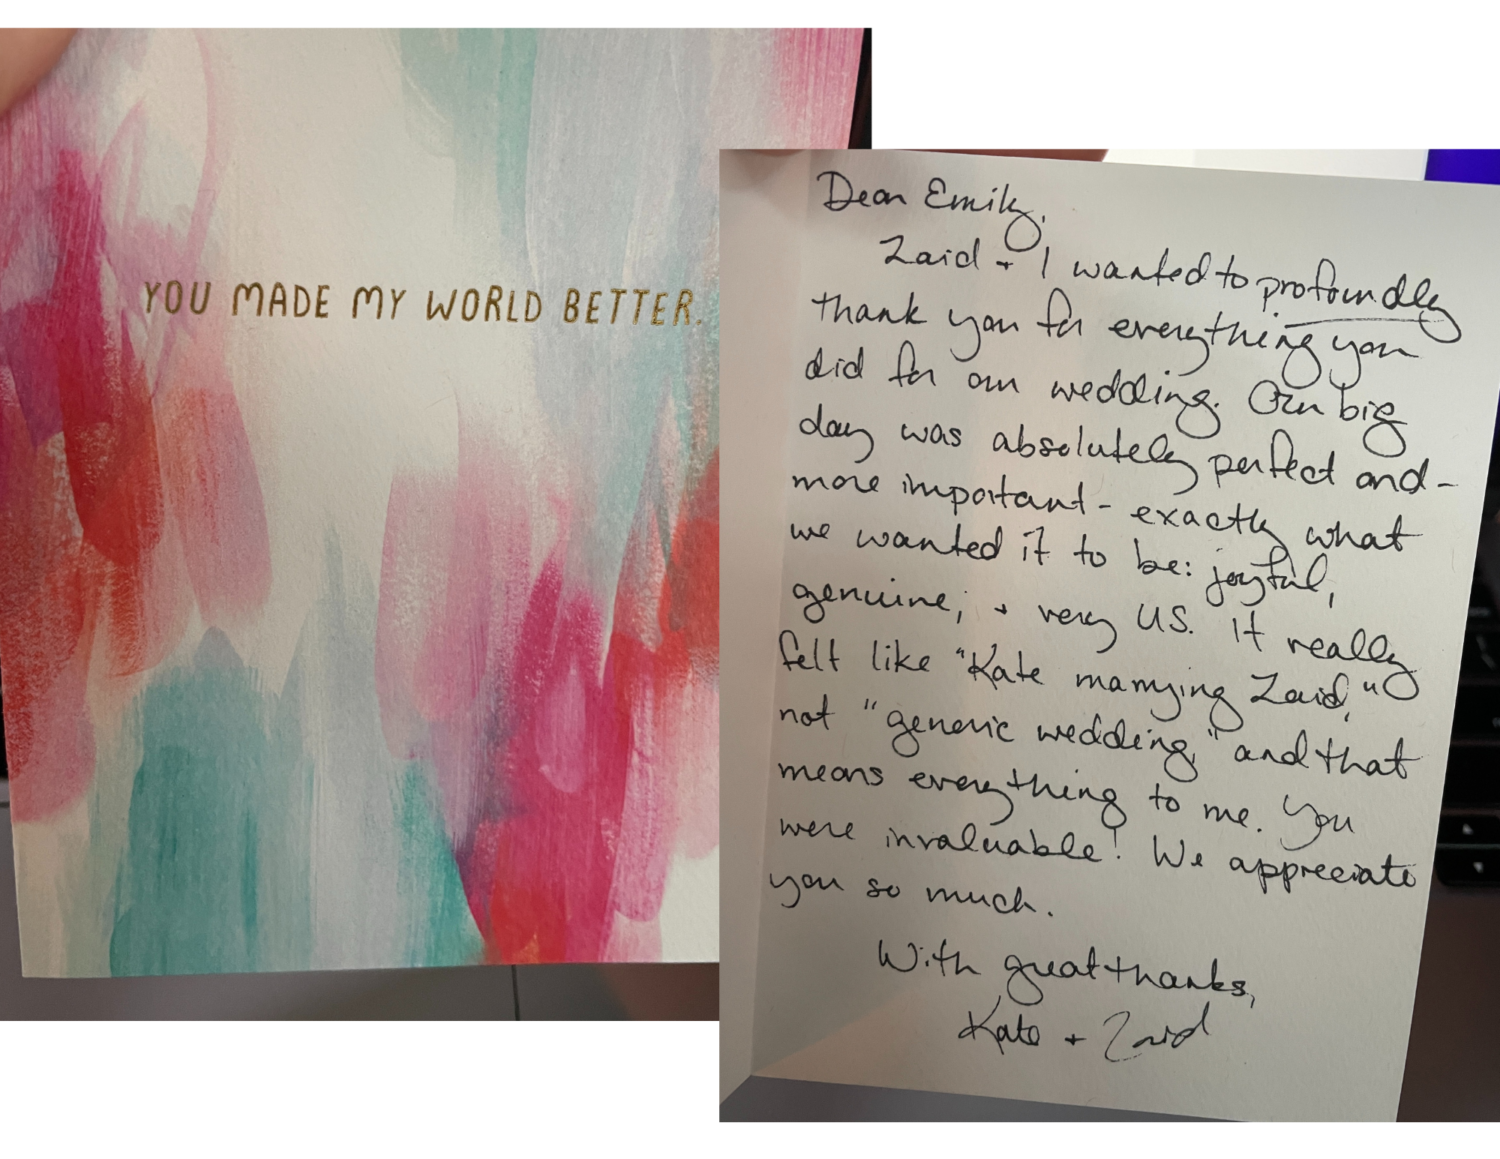 YOU MADE MY WORLD BETTER.
Dear Emily,
Zaid + I wanted to profoundly
thank you for everything you
did for our wedding. Our big
day was absolutely perfect and -
more important - exactly what
we wanted it to be: joyful,
genuine, + very US. It really
felt like "Kate marrying Zaid,"
not "generic wedding," and that
means everything to me. You
were invaluable! We appreciate
you so much.
With great thanks,
Kate + Zaid